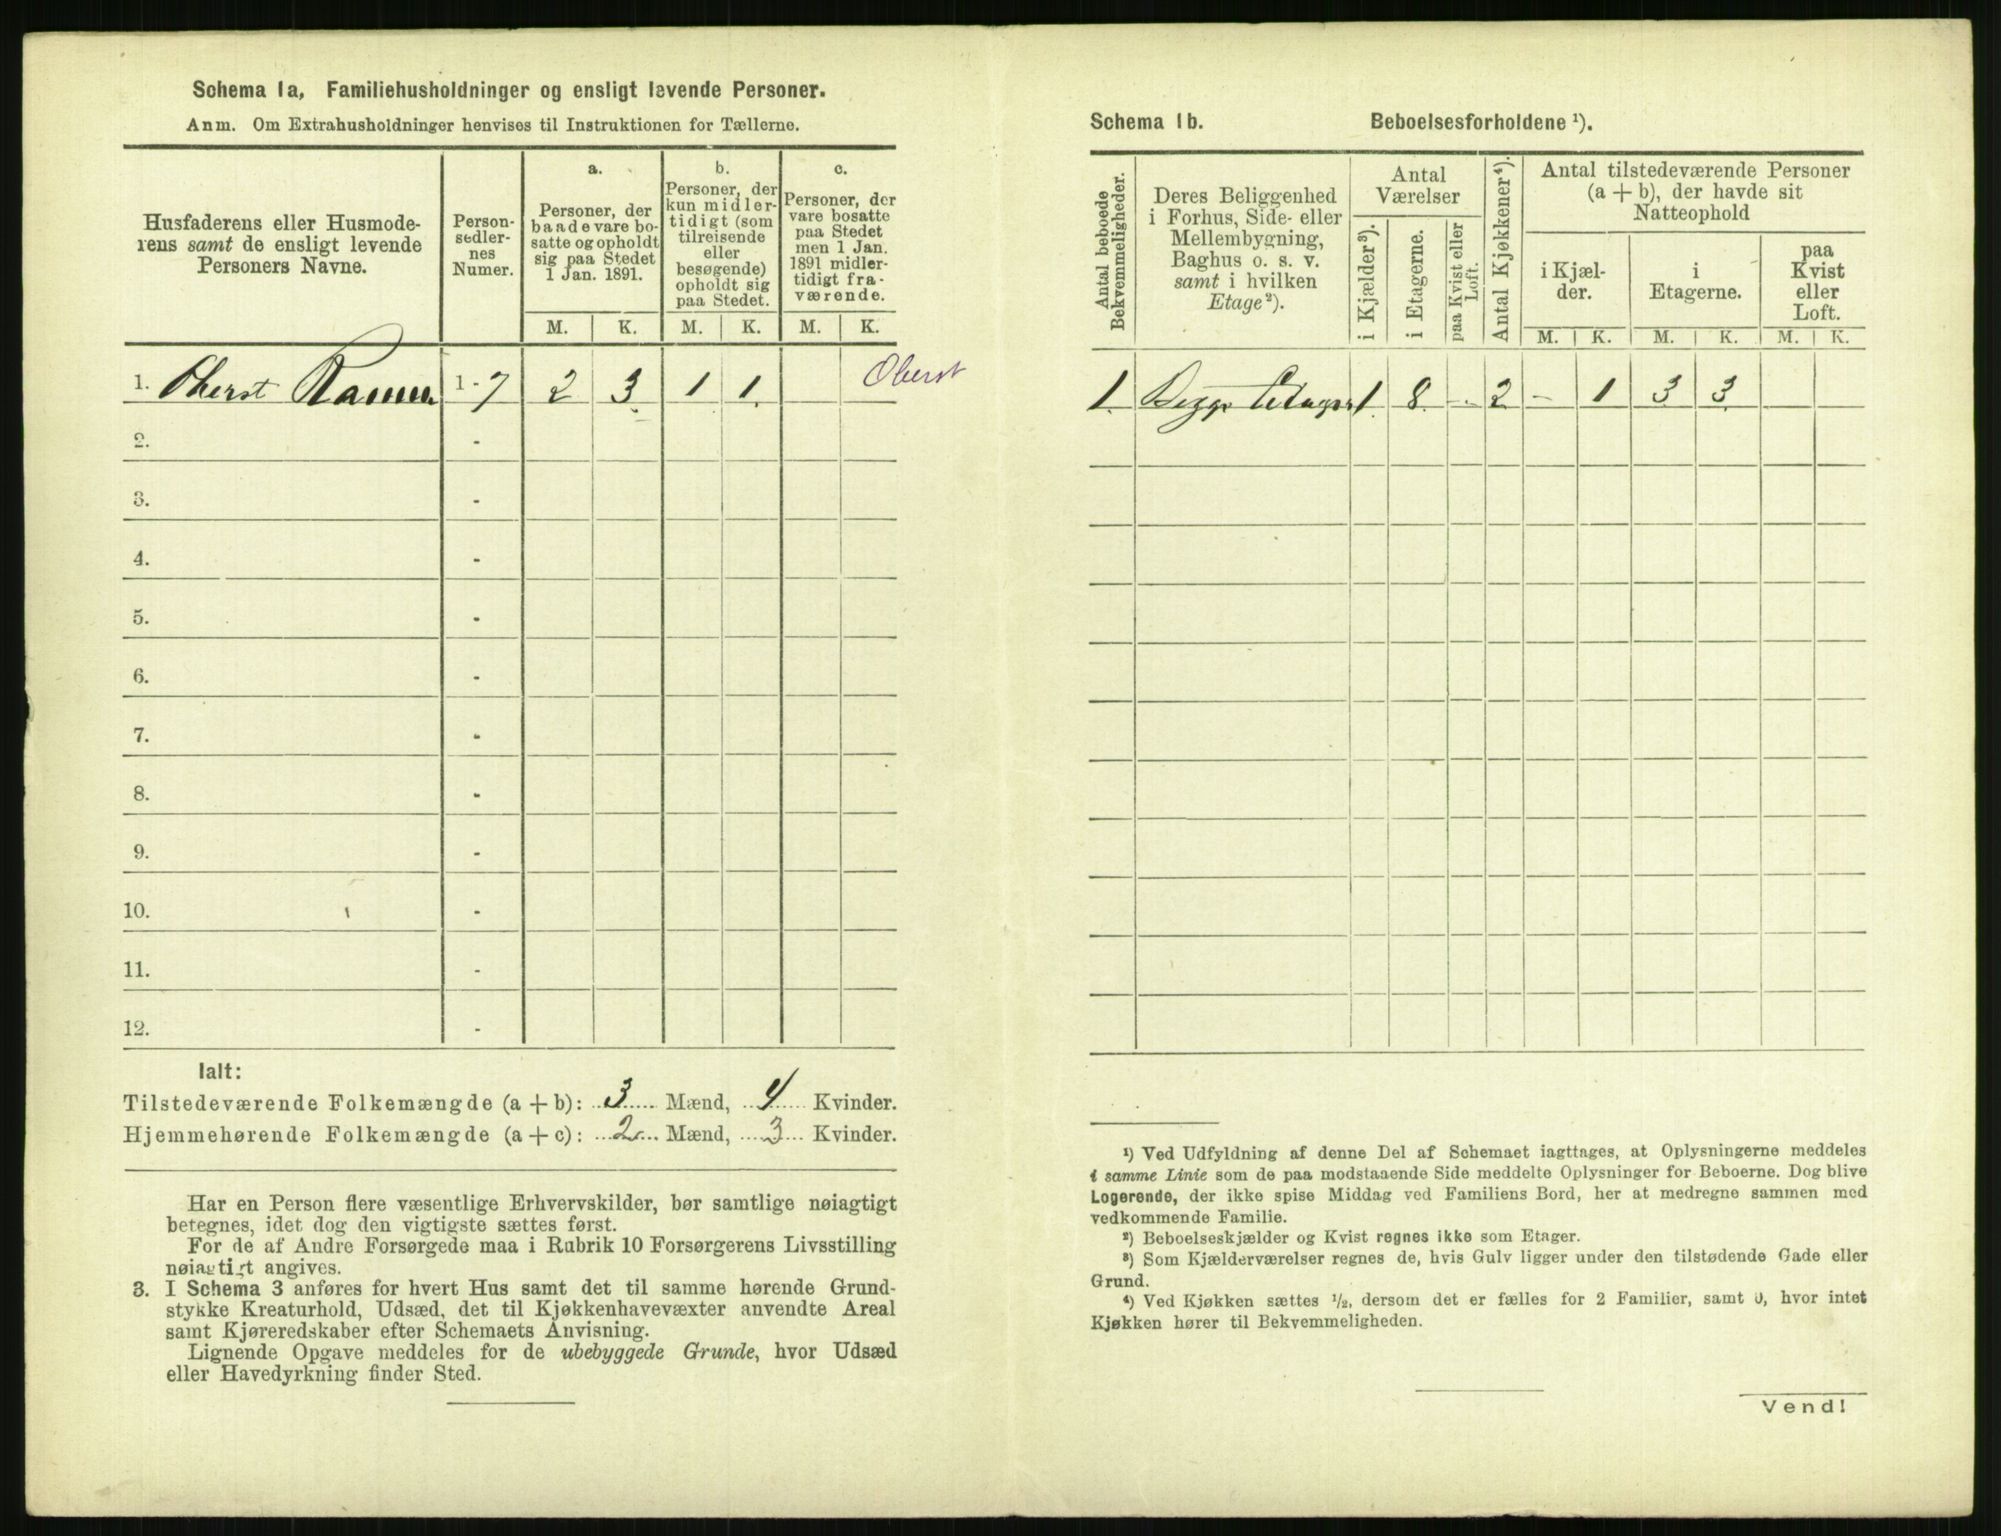 Schema 1a, Familiehusholdninger og ensligt levende Personer.
Anm. Om Extrahusholdninger henvises til Instruktionen for Tællerne.
Husfaderens eller Husmode-
rens samt de ensligt levende
Personers Navne.
Person-
sedler-
nes
Numer.
a.
Personer, der
baade vare bo-
satte og opholdt
sig paa Stedet
1 Jan. 1891.
b.
Personer, der
kun midler-
tidigt (som
tilreisende
eller
besøgende)
opholdt sig
paa Stedet.
c.
Personer, der
vare bosatte
paa Stedet
men 1 Jan.
1891 midler-
tidigt fra-
værende.
M. K. M. K. M. K.
1. Oberst 1 - 7 2 3 1 1 Oberst
2. -
3. -
4. -
5. -
6. -
7. -
8. -
9. -
10. -
11. -
12. -
Ialt:
Tilstedeværende Folkemængde (a + b): 3 Mænd, 4 Kvinder.
Hjemmehørende Folkemængde (a + c): 2 Mænd, 3 Kvinder.
Har en Person flere væsentlige Erhvervskilder, bør samtlige nøiagtigt
betegnes, idet dog den vigtigste sættes først.
For de af Andre Forsørgede maa i Rubrik 10 Forsørgerens Livsstilling
nøiagtigt angives.
3. I Schema 3 anføres for hvert Hus samt det til samme hørende Grund-
stykke Kreaturhold, Udsæd, det til Kjøkkenhavevæxter anvendte Areal
samt Kjøreredskaber efter Schemaets Anvisning.
Lignende Opgave meddeles for de ubebyggede Grunde, hvor Udsæd
eller Havedyrkning finder Sted.
Schema 1b. Beboelsesforholdene ¹).
Antal beboede
Bekvemmeligheder.
Deres Beliggenhed
i Forhus, Side- eller
Mellembygning,
Baghus o. s. v.
samt i hvilken
Etage ²).
Antal
Værelser
i Kjælder ³).
i Etagerne.
paa Kvist eller
Loft.
Antal Kjøkkener ⁴).
Antal tilstedeværende Personer
(a + b), der havde sit
Natteophold
i Kjæl-
der.
i
Etagerne.
paa
Kvist
eller
Loft.
M. K. M. K. M. K.
1. Begge Etager 1. 8. - 2 - 1 3 3
¹) Ved Udfyldning af denne Del af Schemaet iagttages, at Oplysningerne meddeles
i samme Linie som de paa modstaaende Side meddelte Oplysninger for Beboerne. Dog blive
Logerende, der ikke spise Middag ved Familiens Bord, her at medregne sammen med
vedkommende Familie.
²) Beboelseskjælder og Kvist regnes ikke som Etager.
³) Som Kjælderværelser regnes de, hvis Gulv ligger under den tilstødende Gade eller
Grund.
⁴) Ved Kjøkken sættes ½, dersom det er fælles for 2 Familier, samt 0, hvor intet
Kjøkken hører til Bekvemmeligheden.
Vend!